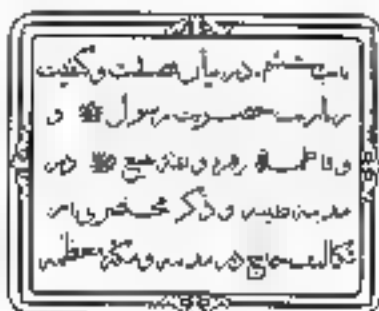 باب ششم، در بیان فضیلت و کیفیت
زیارت حضرت رسول ﷺ و
و فاطمه زهرا و ائمه بقیع در
مدینه طیبه و ذکر مختصری از
تکالیف حاج در مدینه و مکه معظمه